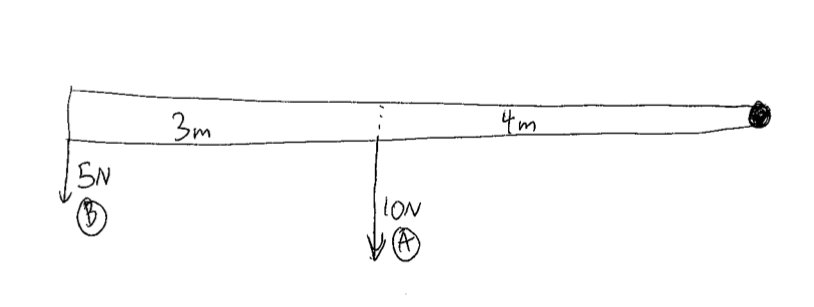 3m
4m
5N
B
10N
A